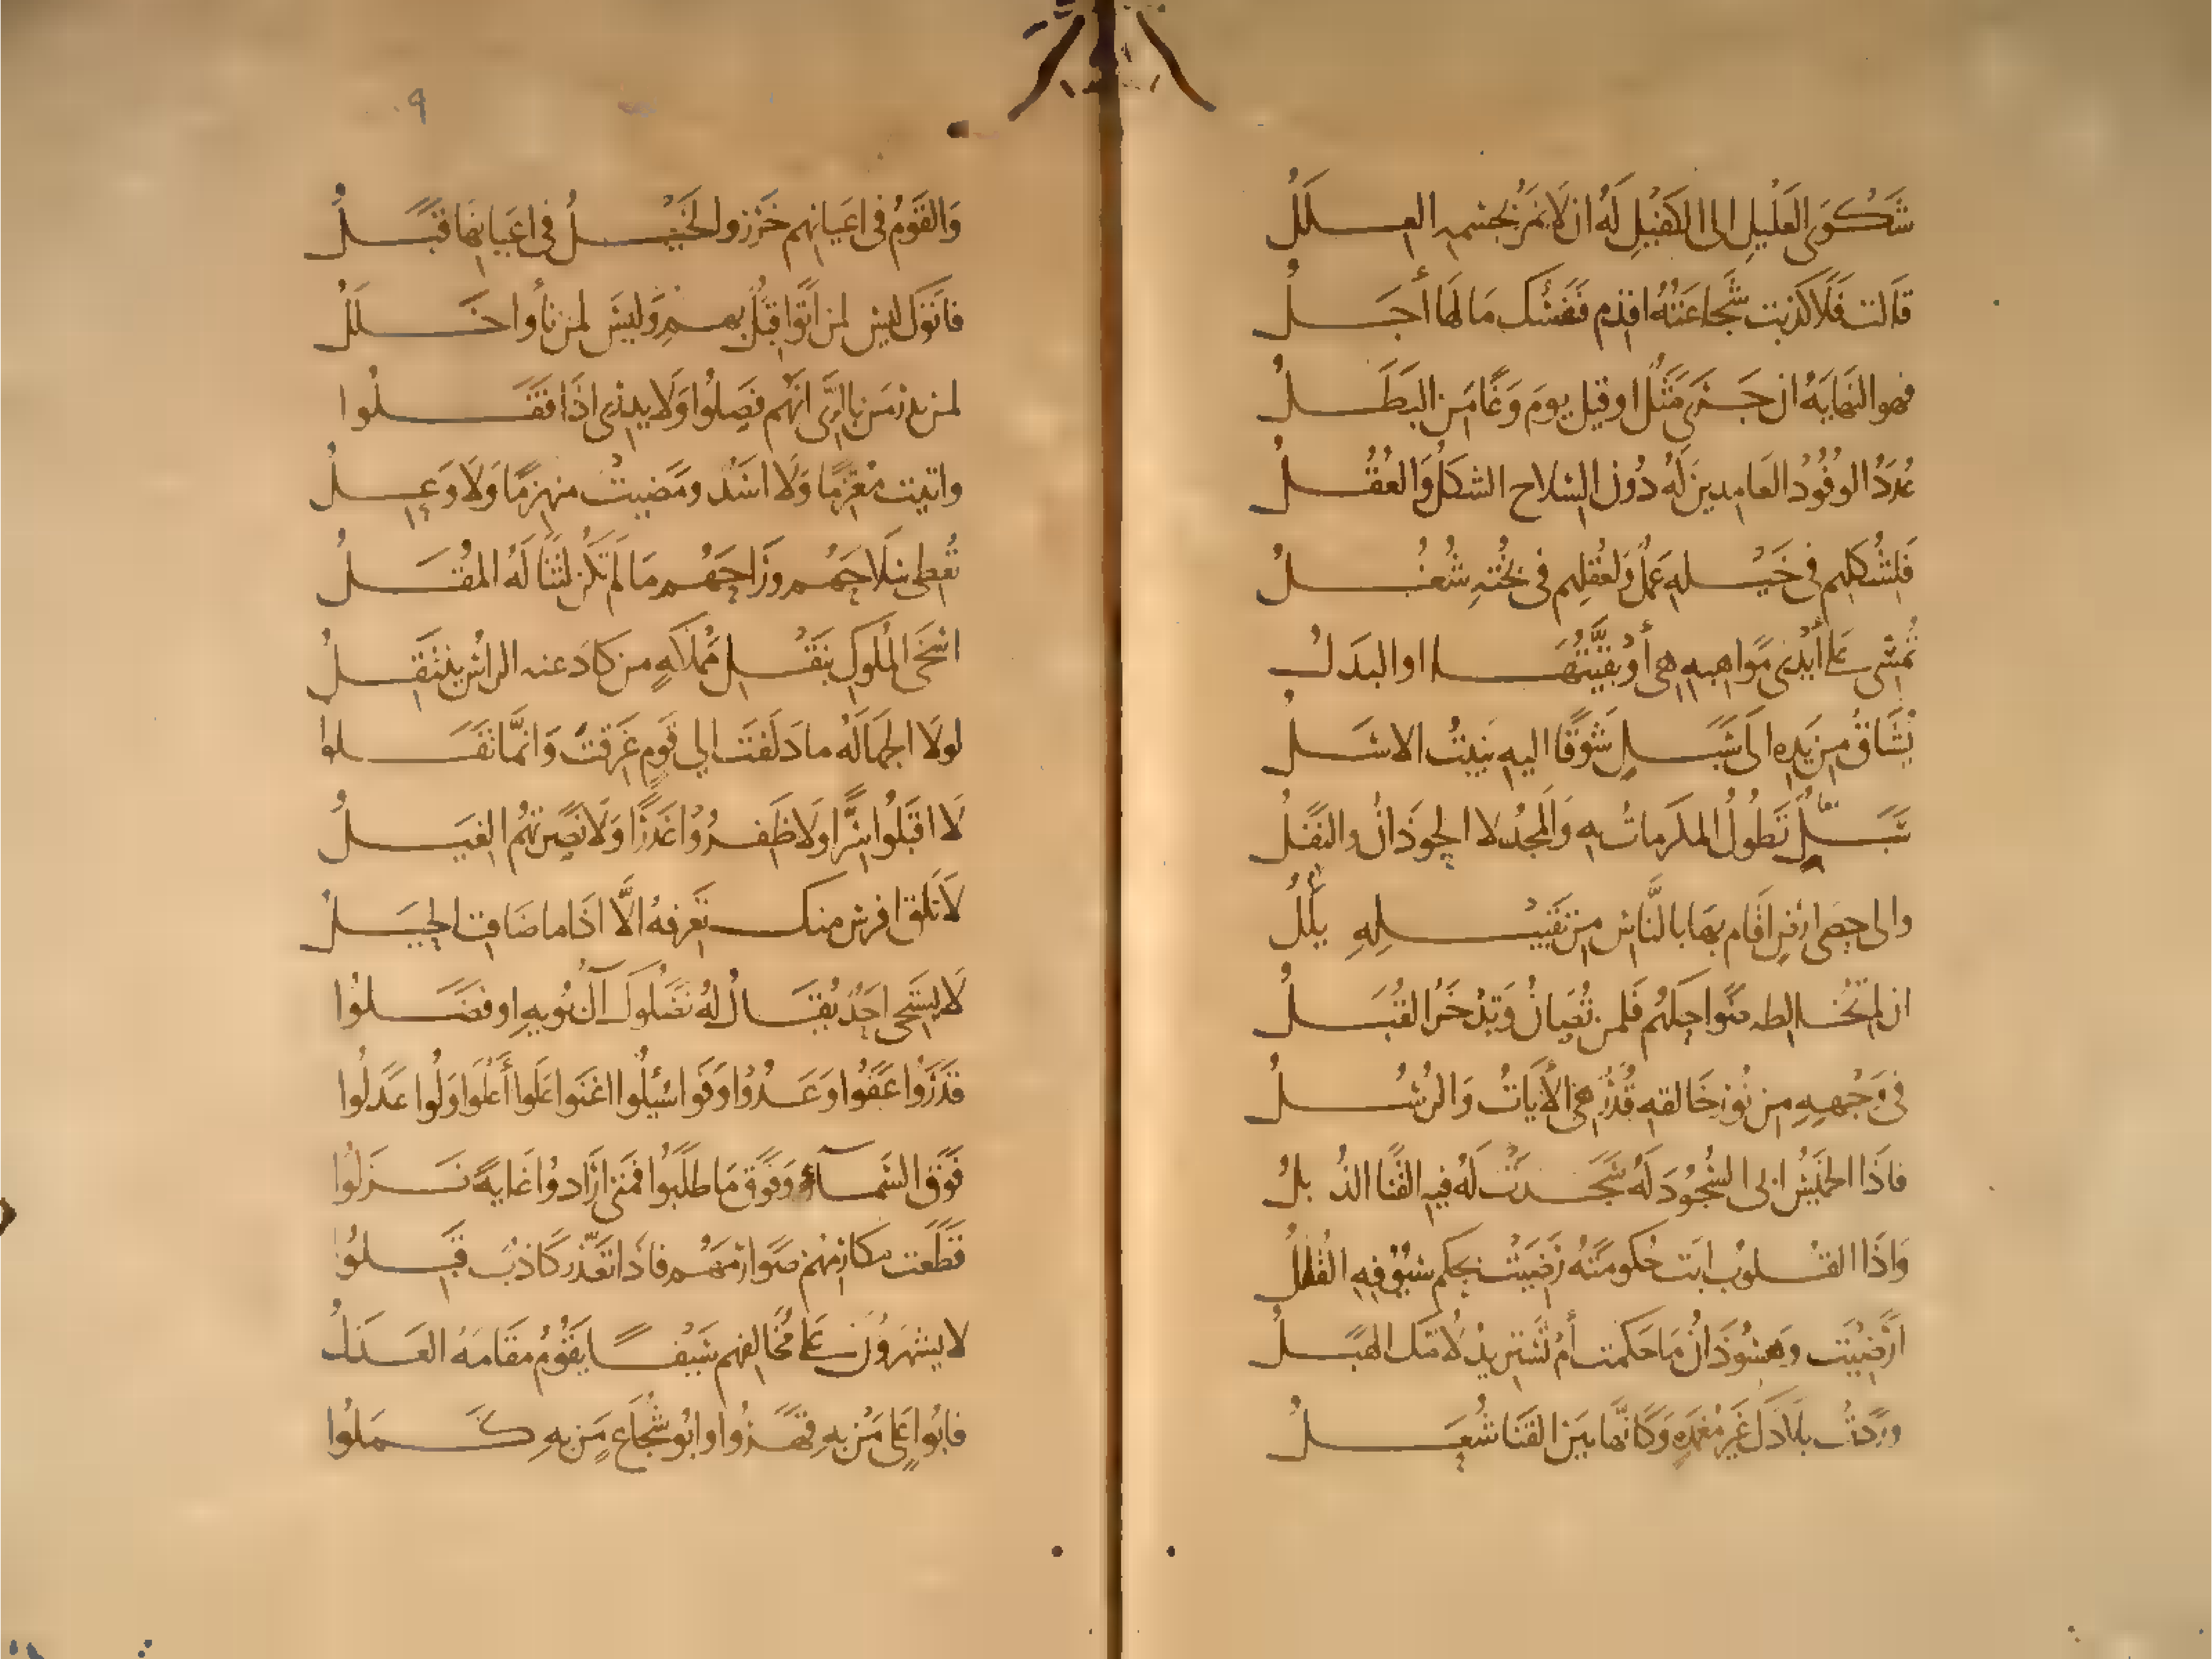 شَكْوَى العَلِيلِ الى الكَفِيلِ لَهُ ان لَا تمُرَّ بجسْمِهِ العِلَلُ
قالت فَلَا كَذَبت شَجَاعَتُهُ اقدِم فَنَفْسُكَ مَا لَهَا أَجَلُ
فهو النّهَايَهُ ان جَرَى مَثَلٌ او قيل يومَ وَغًا مَنِ البَطَلُ
عُدَدُ الوفُودِ العَامِدِينَ لَهُ دُونَ السِّلاحِ الشكلُ وَالعُقُلُ
فَلِشُكلِهِم فى خَيْلِهِ عَمَلٌ ولعُقْلِهِم فى بُخْتِهِ شُغُلُ
تُمْسِى على أيْدِى مَواهِبِهِ هِىَ أوْ بقيَّتُهَا او البدَلُ
يُشتَاقُ مِن يَدِهِ الى سَبَلٍ شَوْقًا اليهِ يَنبُتُ الاسَلُ
سَبَلٌ تَطُولُ المكرماتُ بِهِ وَالمجدُ لا الحوذَانُ والنَّفَلُ
والى حِصَى ارضٍ اقَام بِهَا بالنَّاسِ مِن تقبيلِهِ يَلَلُ
ان لم تُخَالِطه ضَوَاحِكُهُم فَلِمَن تُصَانُ وَتُدْخَرُ القُبَلُ
فى وَجْهِهِ مِن نُورِ خَالقِهِ قُدَرٌ هِىَ الأَيَاتُ وَالرُسُلُ
فاذَا الخميسُ ابى السُّجُودَ لَهُ سَجَدَتْ لَهُ فيهِ القَنَا الذُبلُ
وَاذَا القلوبُ ابَت حُكومَتَهُ رَضِيَتْ بحكم سُيُوْفِهِ القُلَلُ
ارَضِيتَ وهسُوذَانُ مَا حَكمت أمْ تَسْتَزيدُ لأمّك الهَبَلُ
ورَدَتْ بلَادَكَ غَيرَ مُغْمَدَةٍ وَكَانّها بَينَ القَنَا شُعَلُ
٩
وَالقَوْمُ فى اعيَانِهم خَزَرٌ والخَيْلُ فى اعيَانِهَا قَبَلُ
فاتوكَ ليسَ لمن اتَوْا قِبَلٌ بهم وَليسَ لمن نأوا خَلَلُ
لم يدرِ مَن بالرَّىِ انّهُم فصَلُوا وَلَا يدرى اذَا قفَلُوا
واتيتَ مُعْتزِمًا وَلَا اسَدٌ ومَضيتَ منهزمًا وَلَا وَعِلُ
تُعطِى سِلَاحَهُم وَرَاحَهُم مَا لم تَكُن لتنَالَهُ المقُلُ
اسْخَى المُلُوكِ بنَقْلِ مَمْلَكَهٍ من كَادَ عنه الراسُ ينتَقِلُ
لولَا الجهَالَهُ مادَلَفتَ الى قومٍ غَرِقتَ وَانمَّا تَفَلوا
لَا اقبَلُوا سِرًّا ولَا ظَفِرُوا غَدْرًا وَلَا نصَرتهُم الغِيَلُ
لَا تَلقَ افرسَ منك تَعرِفهُ الَّا اذَا ما ضَاقتِ الحِيَلُ
لَا يَسْتَحِى احَدٌ يُقَالُ لهُ نَضَلُوكَ آلُ بُويهِ او فضَلُوا
قدَرُوا عَفَوْا وعَدُوا وَفَوْا سُئِلُوا اغنَوا عَلَوا أَعْلَوا وَلُوا عَدَلُوا
فَوْقَ السَّمَآءِ وَفَوْق مَا طلَبُوا فمَتى ارَادوُا غَايةً نَزَلُوا
قَطَعَت مكارِمُهُم صَوارِمَهُم فاذَا تعَذّر كاذبٌ قَبِلُوا
لَا يشهَرُونَ على مُخَالِفِهم سَيْفًا يَقُومُ مَقَامَهُ العَذَلُ
فابُو عَلىٍّ مَن بهِ قَهَرُوا وابُو شُجَاعٍ مَن بهِ كَمَلُوا